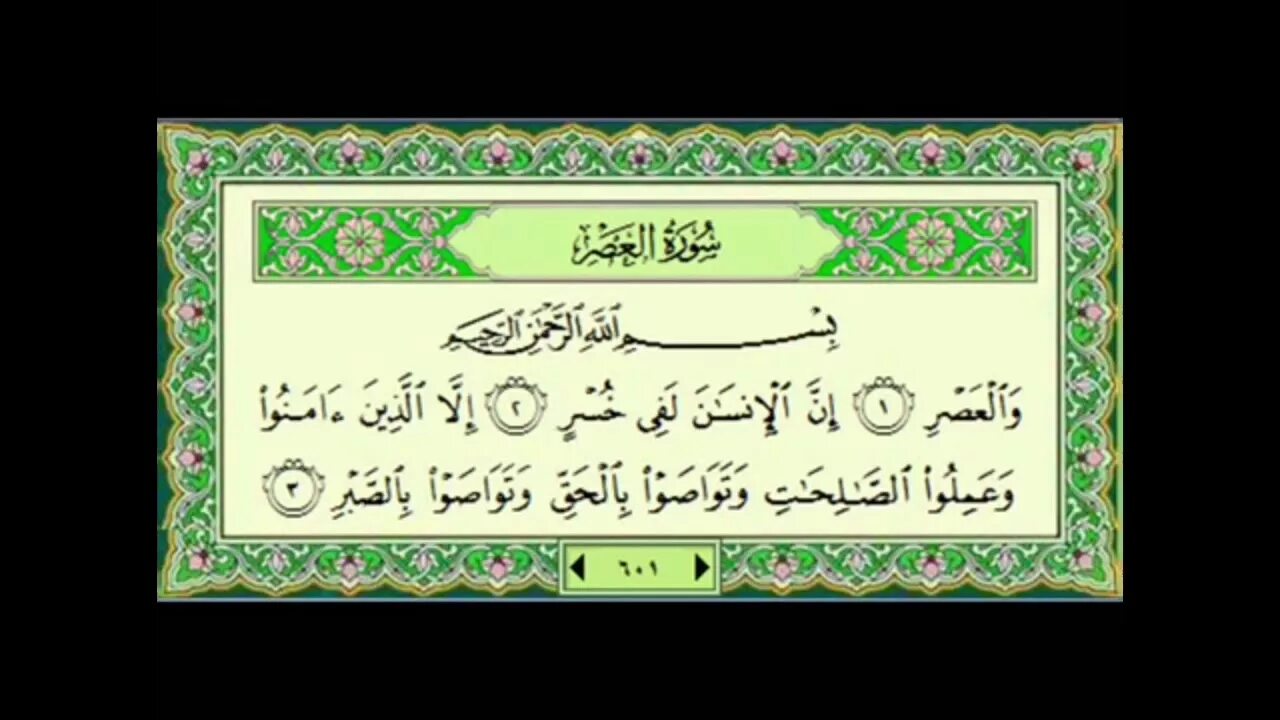 سُورَةُ العَصْرِ
بِسْمِ ٱللَّهِ ٱلرَّحْمَٰنِ ٱلرَّحِيمِ
وَٱلْعَصْرِ ١ إِنَّ ٱلْإِنسَٰنَ لَفِى خُسْرٍ ٢ إِلَّا ٱلَّذِينَ ءَامَنُوا۟
وَعَمِلُوا۟ ٱلصَّٰلِحَٰتِ وَتَوَاصَوْا۟ بِٱلْحَقِّ وَتَوَاصَوْا۟ بِٱلصَّبْرِ ٣
٦٠١